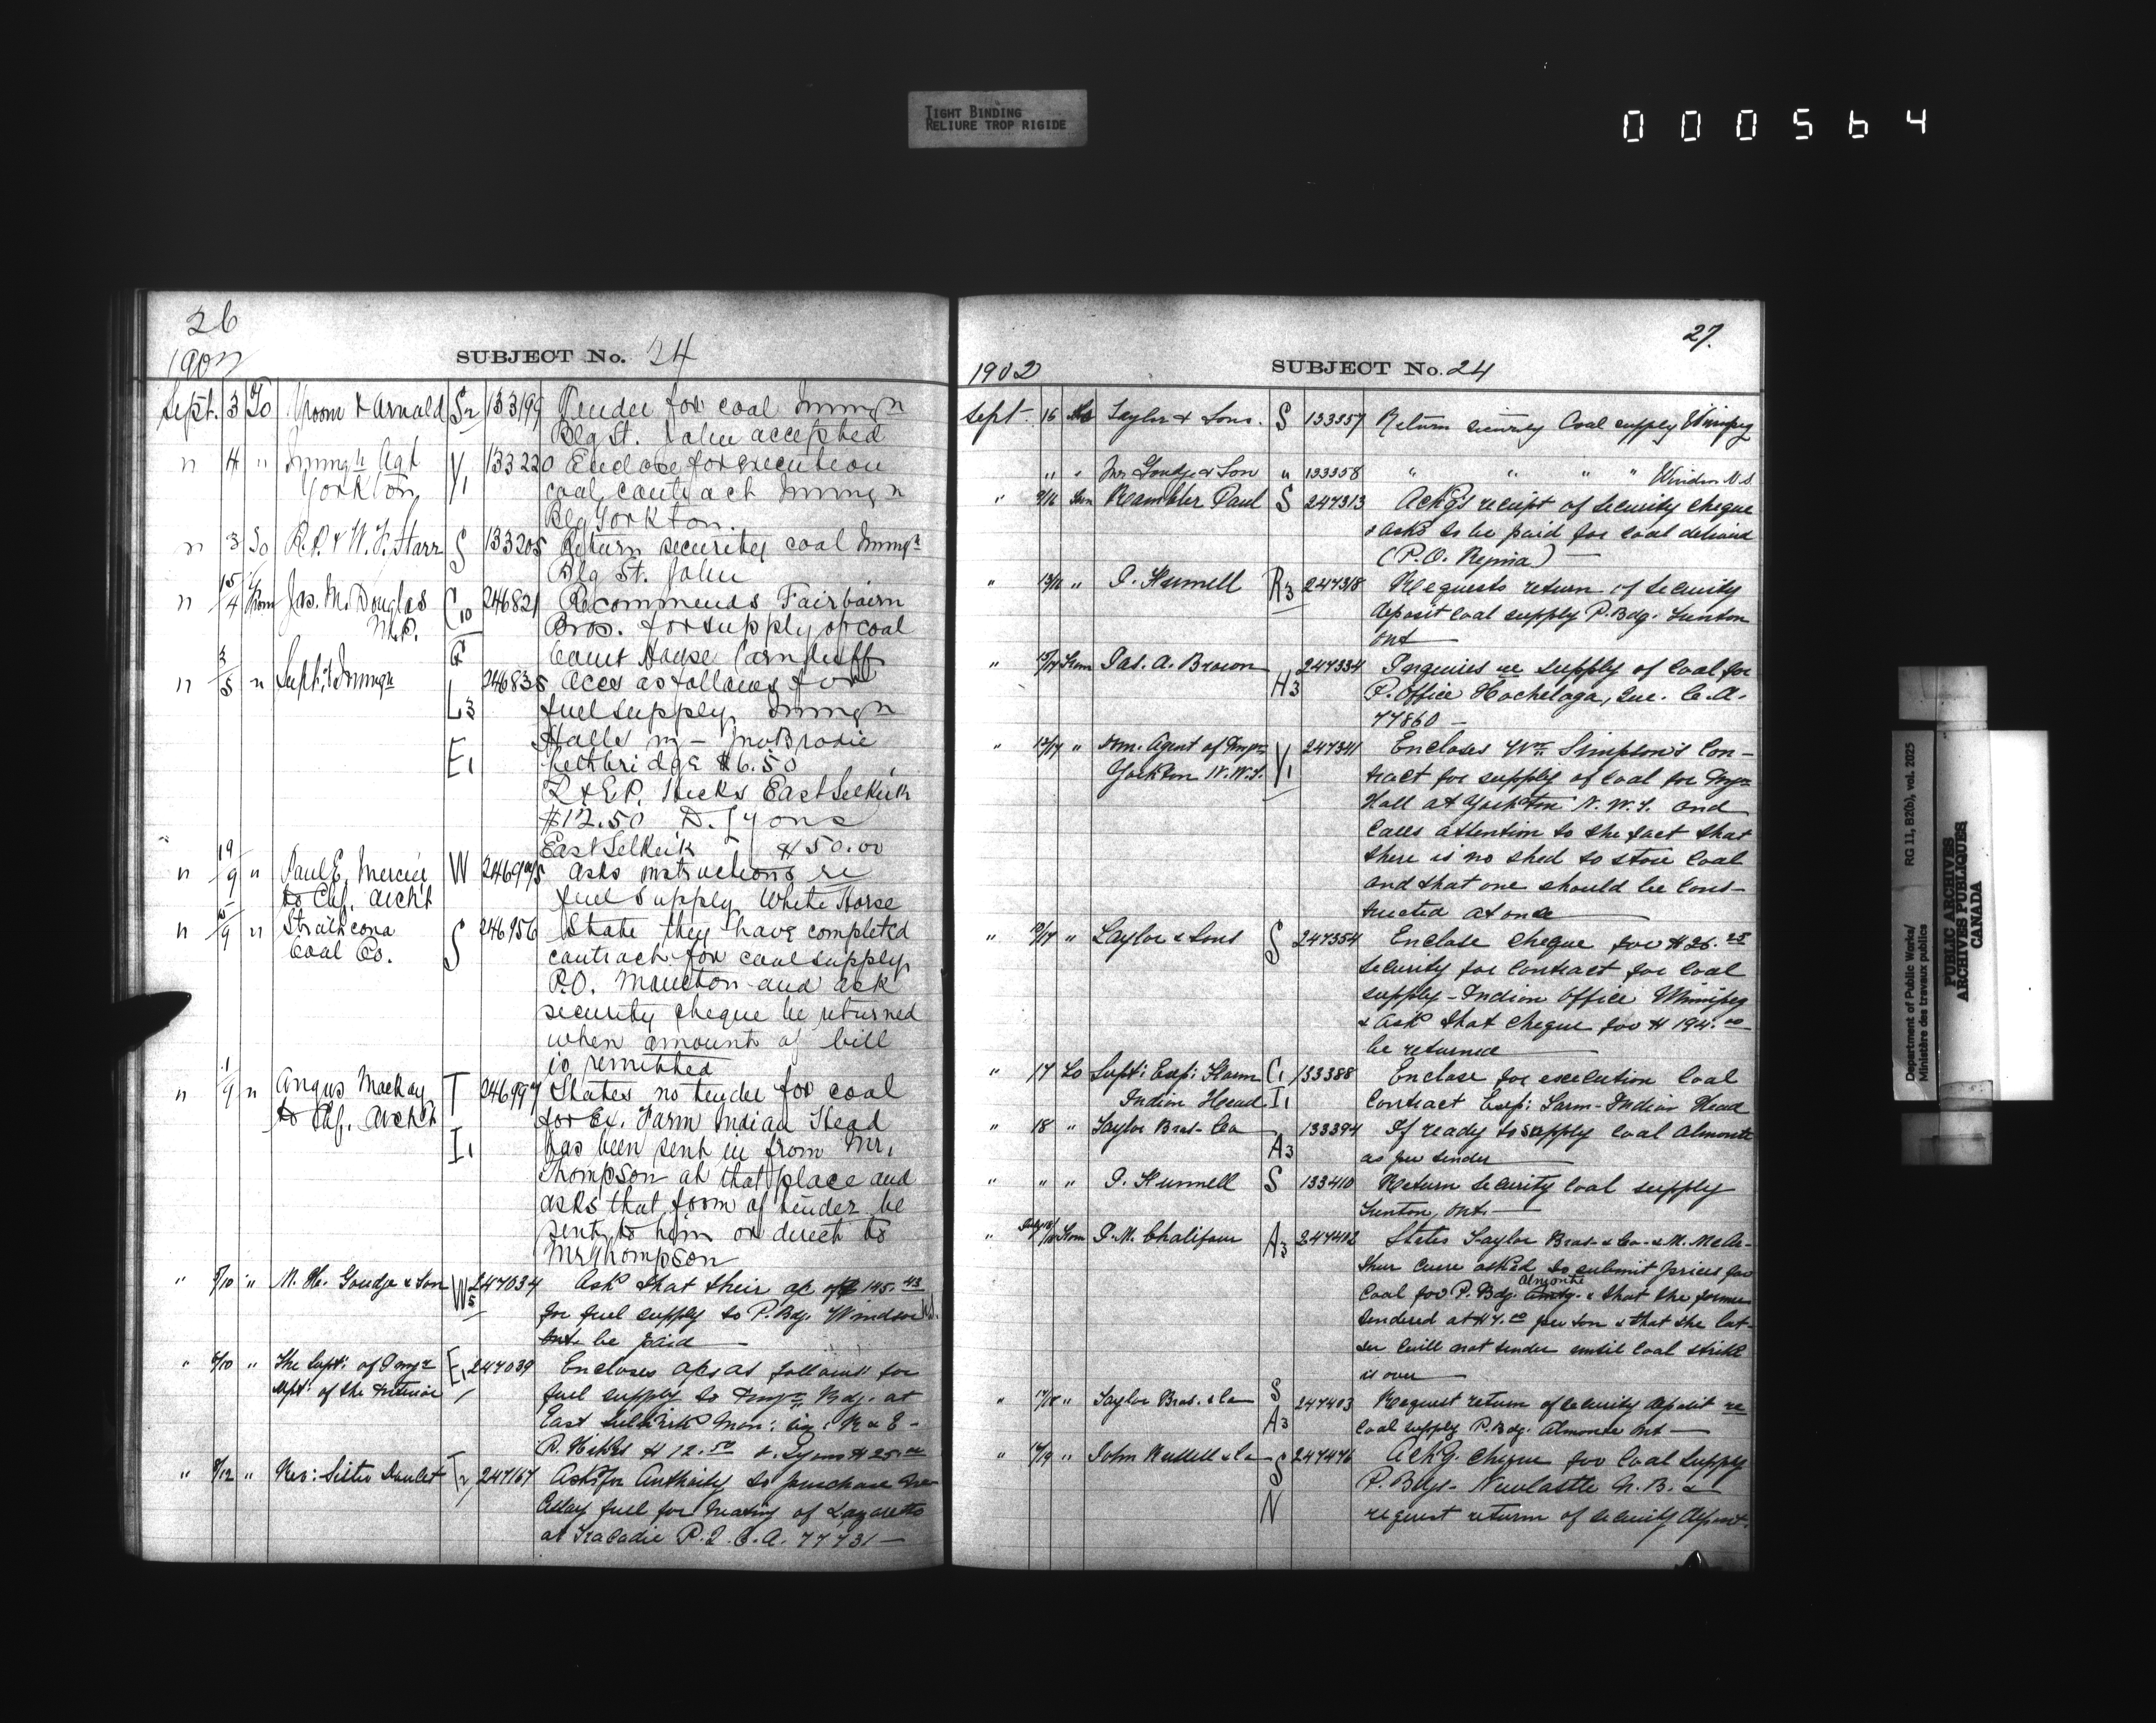 TIGHT BINDING
RELIURE TROP RIGIDE
000564
26
1902 SUBJECT No. 24
Sept. 3 To Vroom & Arnold S2 133199 Tender for coal Immgn
Bldg St. John accepted
" 4 " Immgn Agt Y1 133220 Enclose for execution
Yorkton coal contract Immgn
Bldg Yorkton.
" 3 To R.P. & W.F. Starr S 133205 Return security coal Immgn
Bldg St. John
" 15/4 From Jas. M. Douglas C10 246821 Recommends Fairbairn
M.P. Bros. for supply of coal
Court House Carnduff
" 3/5 " Supt. of Immgn 246835 Accs as follows for
L3 fuel supply Immgn
Halls
E1 Lethbridge $6.50
R & E.P. Hicks East Selkirk
$12.50 D. Lyons
East Selkirk $50.00
" 19/9 " Paul E. Mercier W asks instructions re
to Chf. Archt fuel supply White Horse
" 5/9 " Strathcona S 246956 State they have completed
Coal Co. contract for coal supply
P.O. Moncton and ask
security cheque be returned
when amount of bill
is remitted
" 1/9 " Angus Mackay T 246997 States no tender for coal
to Chf. Archt for Ex. Farm Indian Head
I1 has been sent in from Mr.
Thompson at that place and
asks that form of tender be
sent to him or direct to
Mr Thompson
" 5/10 " M. H. Goudge & Son W5 247034 Ask that their a/c of $145.43
for fuel supply to P. Bdg. Windsor N.S.
Ont be paid
" 6/10 " The Supt: of Immgn E1 247039 Encloses a/cs as follows for
Dept: of the Interior fuel supply to Immgn Bdg. at
East Selkirk Man: viz: R & E-
P. Hicks $12.50 D. Lyons $25.00
" 8/12 " Rev: Sister Doulet T2 247167 Asks for Authority to purchase
fuel for heating of Lazaretto
at Tracadie C.A. 77731
27.
1902 SUBJECT No. 24
Sept 16 To Taylor & Sons. S 133357 Return security Coal supply Winnipeg
" " Goudge & Son " 133358 " " " " Windsor N.S
" 9/16 From Rambler Paul S 247313 Ackg's receipt of security cheque
& asks to be paid for coal delivered
(P.O. Regina)
" 13/16 " R3 247318 Requests return of security
deposit coal supply P. Bdg. Trenton
Ont
" From Jas. A. Brown 247334 Inquires re supply of coal for
H3 P. Office Hochelaga, Que. C.A.
77860
" 12/17 " Im. Agent of Immgn 247341 Encloses Wm Simpson's Con-
Yorkton N.W.T. Y1 tract for supply of coal for Immgn
Hall at Yorkton N.W.T. and
Calls attention to the fact that
there is no shed to store coal
and that one should be cons-
tructed at once
" " Taylor & Sons S 247354 Enclose cheque for $26.25
security for contract for coal
supply - Indian Office Winnipeg
& ask that cheque for $194.00
be returned
" 17 To Supt: Exp: Farm C1 133388 Enclose for execution Coal
Indian Head I1 Contract Exp: Farm - Indian Head
" 18 " Taylor Bros. & Co 133394 If ready to supply coal Almonte
A3 as per tender
" " " S 133410 Return security coal supply
Trenton, Ont.
" From P. M. Chalifour A3 247402 States Taylor Bros. & Co. & M. McA-
ther were asked to submit prices for
Almonte
coal for P. Bdg. & that the former
tendered at $7.00 per ton & that the lat-
ter will not tender until coal strike
is over
" 17/18 " Taylor Bros. & Co S 247403 Request return of security deposit re
A3 coal supply P. Bdg. Almonte Ont
" 16/19 " John Russell & Co S 247476 Ackg. cheque for coal supply
P. Bdgs - Newcastle N.B. &
N request return of security deposit.
Department of Public Works/ RG 11, B2(b), vol. 2025
Ministère des travaux publics
PUBLIC ARCHIVES
ARCHIVES PUBLIQUES
CANADA